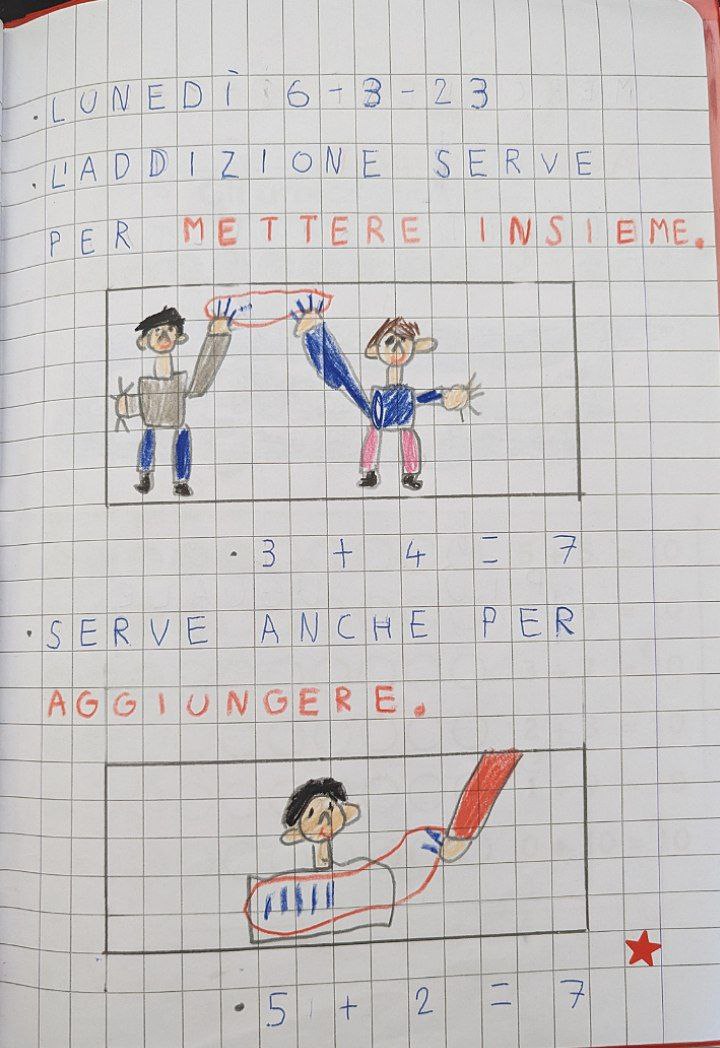 . LUNEDÌ 6-3-23
. L'ADDIZIONE SERVE
PER METTERE INSIEME.
• 3 + 4 = 7
• SERVE ANCHE PER
AGGIUNGERE.
• 5 + 2 = 7